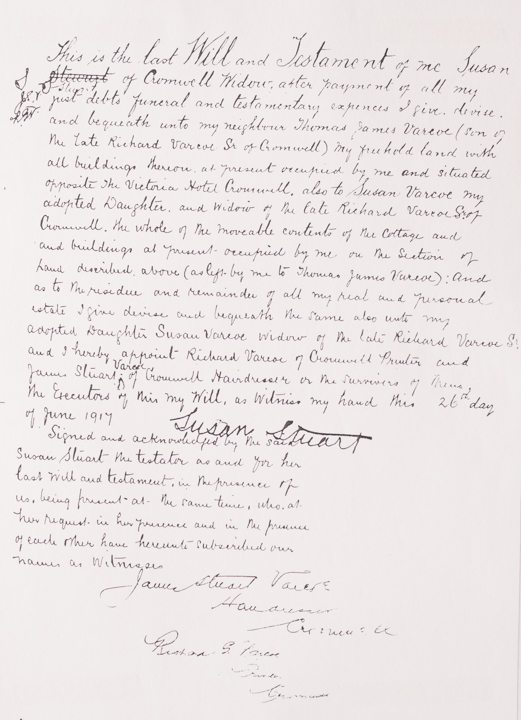 This is the last Will and Testament of me Susan
Stewart of Cromwell Widow, after payment of all my
Stuart
J S. V
just debts funeral and testamentary expences I give. devise.
and bequeath unto my neighbour Thomas James Varcoe (son of
the late Richard Varcoe Sr of Cromwell) My freehold land with
all buildings thereon, at present occupied by me and situated
opposite The Victoria Hotel Cromwell, also to Susan Varcoe my
adopted Daughter, and Widow of the late Richard Varcoe Sr of
Cromwell, the whole of the moveable contents of the Cottage and
and buildings at present occupied by me on the Section of
Land discribed above (as left by me to Thomas James Varcoe); And
as to the residue and remainder of all my real and personal
estate I give devise and bequeath the same also unto my
adopted Daughter Susan Varcoe widow of the late Richard Varcoe Sr
and I hereby appoint Richard Varcoe of Cromwell Printer and
James Stuart Varcoe of Cromwell Hairdresser or the survivors of them,
the Executors of this my Will, as Witness my hand this 26th day
of June 1917
Susan Stuart
Signed and acknowledged by the said
Susan Stuart the testator as and for her
last will and testament, in the presence of
us, being present at the same time, who. at
her request in her presence and in the presence
of each other have hereunto subscribed our
names as Witnesses
James Stuart Varcoe
Hairdresser
Cromwell
Richard G Varcoe
Cromwell